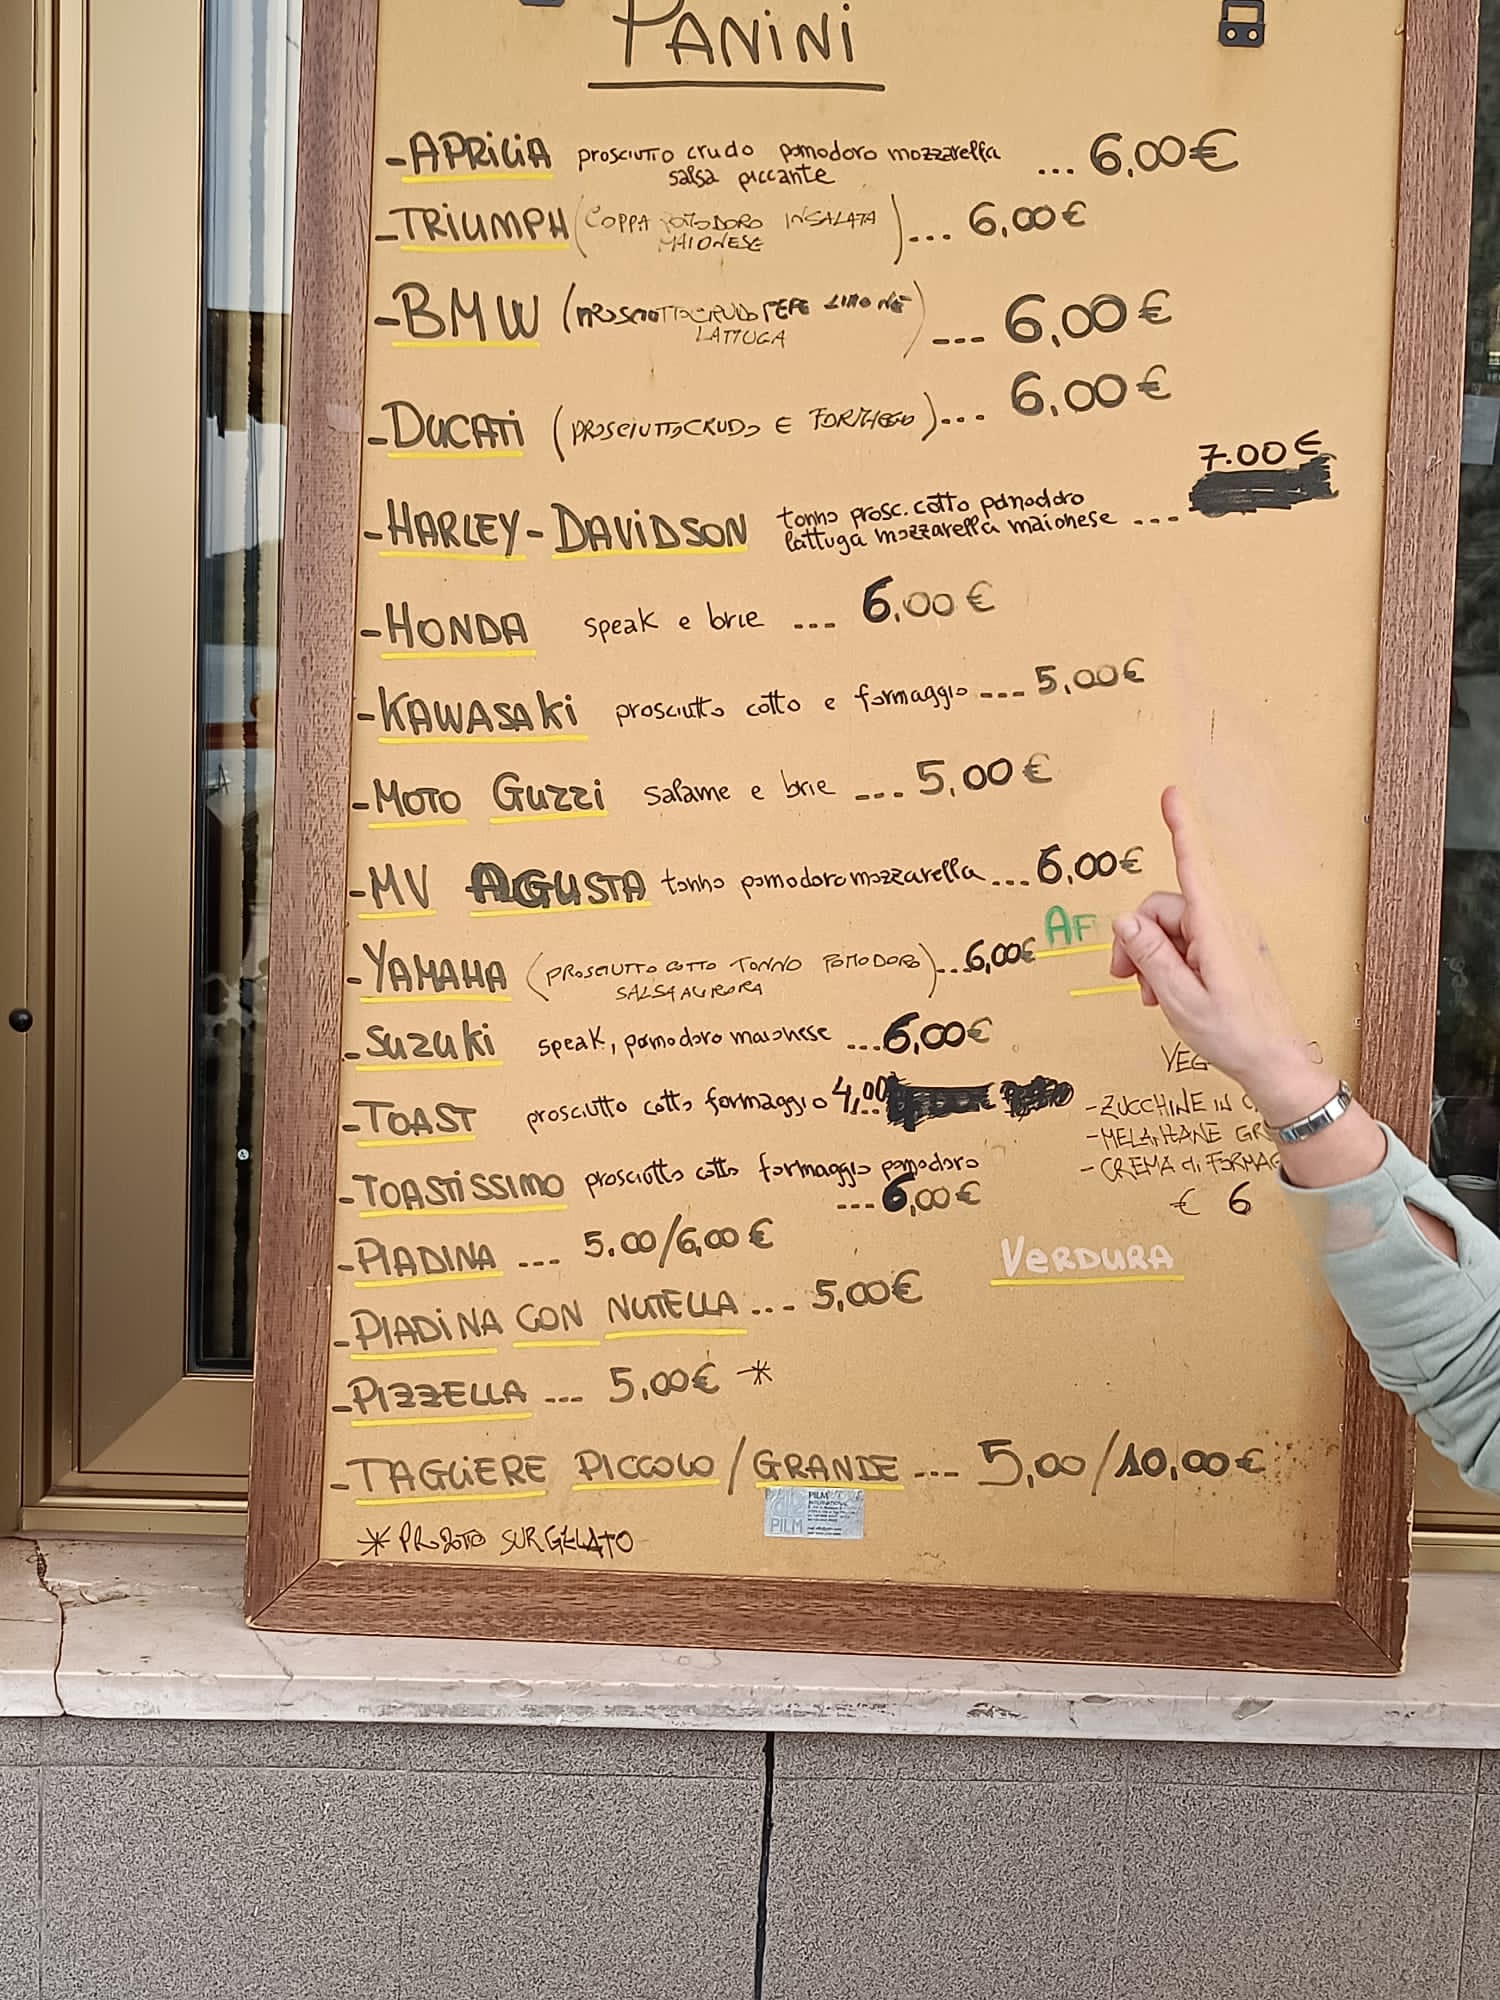 PANINI
- APRILIA prosciutto crudo pomodoro mozzarella ... 6,00€
salsa piccante
- TRIUMPH (COPPA POMODORO INSALATA ) ... 6,00€
MAIONESE
- BMW (PROSCIUTTO CRUDO PEPE LIMONE ) --- 6,00€
LATTUGA
- DUCATI (PROSCIUTTO CRUDO E FORMAGGIO) ... 6,00€
7.00€
- HARLEY-DAVIDSON tonno prosc. cotto pomodoro
lattuga mozzarella maionese ---
- HONDA speak e brie --- 6,00€
- KAWASAKI prosciutto cotto e formaggio --- 5,00€
- MOTO GUZZI salame e brie --- 5,00€
- MV AGUSTA tonno pomodoro mozzarella ... 6,00€
AF
- YAMAHA (PROSCIUTTO COTTO TONNO POMODORO ) ... 6,00€
SALSA AURORA
- SUZUKI speak, pomodoro maionese ... 6,00€
VEG
- TOAST prosciutto cotto formaggio 4,00
- ZUCCHINE IN
- MELANZANE GR
- CREMA di FORMAG
€ 6
- TOASTISSIMO prosciutto cotto formaggio pomodoro
--- 6,00€
- PIADINA --- 5.00/6,00€
VERDURA
- PIADINA CON NUTELLA --- 5,00€
- PIZZELLA --- 5,00€ *
- TAGLIERE PICCOLO / GRANDE --- 5,00/10,00€
PILM
* PRODOTTO SURGELATO